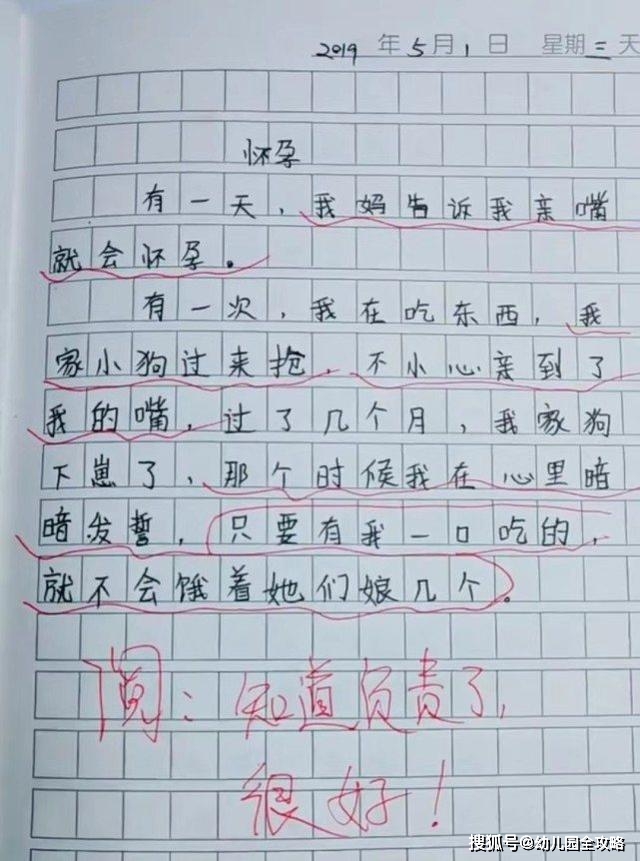 2019 年 5 月 1 日 星期三 天
怀孕
有一天，我妈告诉我亲嘴
就会怀孕。
有一次，我在吃东西，我
家小狗过来抢，不小心亲到了
我的嘴，过了几个月，我家狗
下崽了，那个时候我在心里暗
暗发誓，只要有我一口吃的，
就不会饿着她们娘几个。
阅：知道负责了，
很好！
搜狐号@幼儿园全攻略